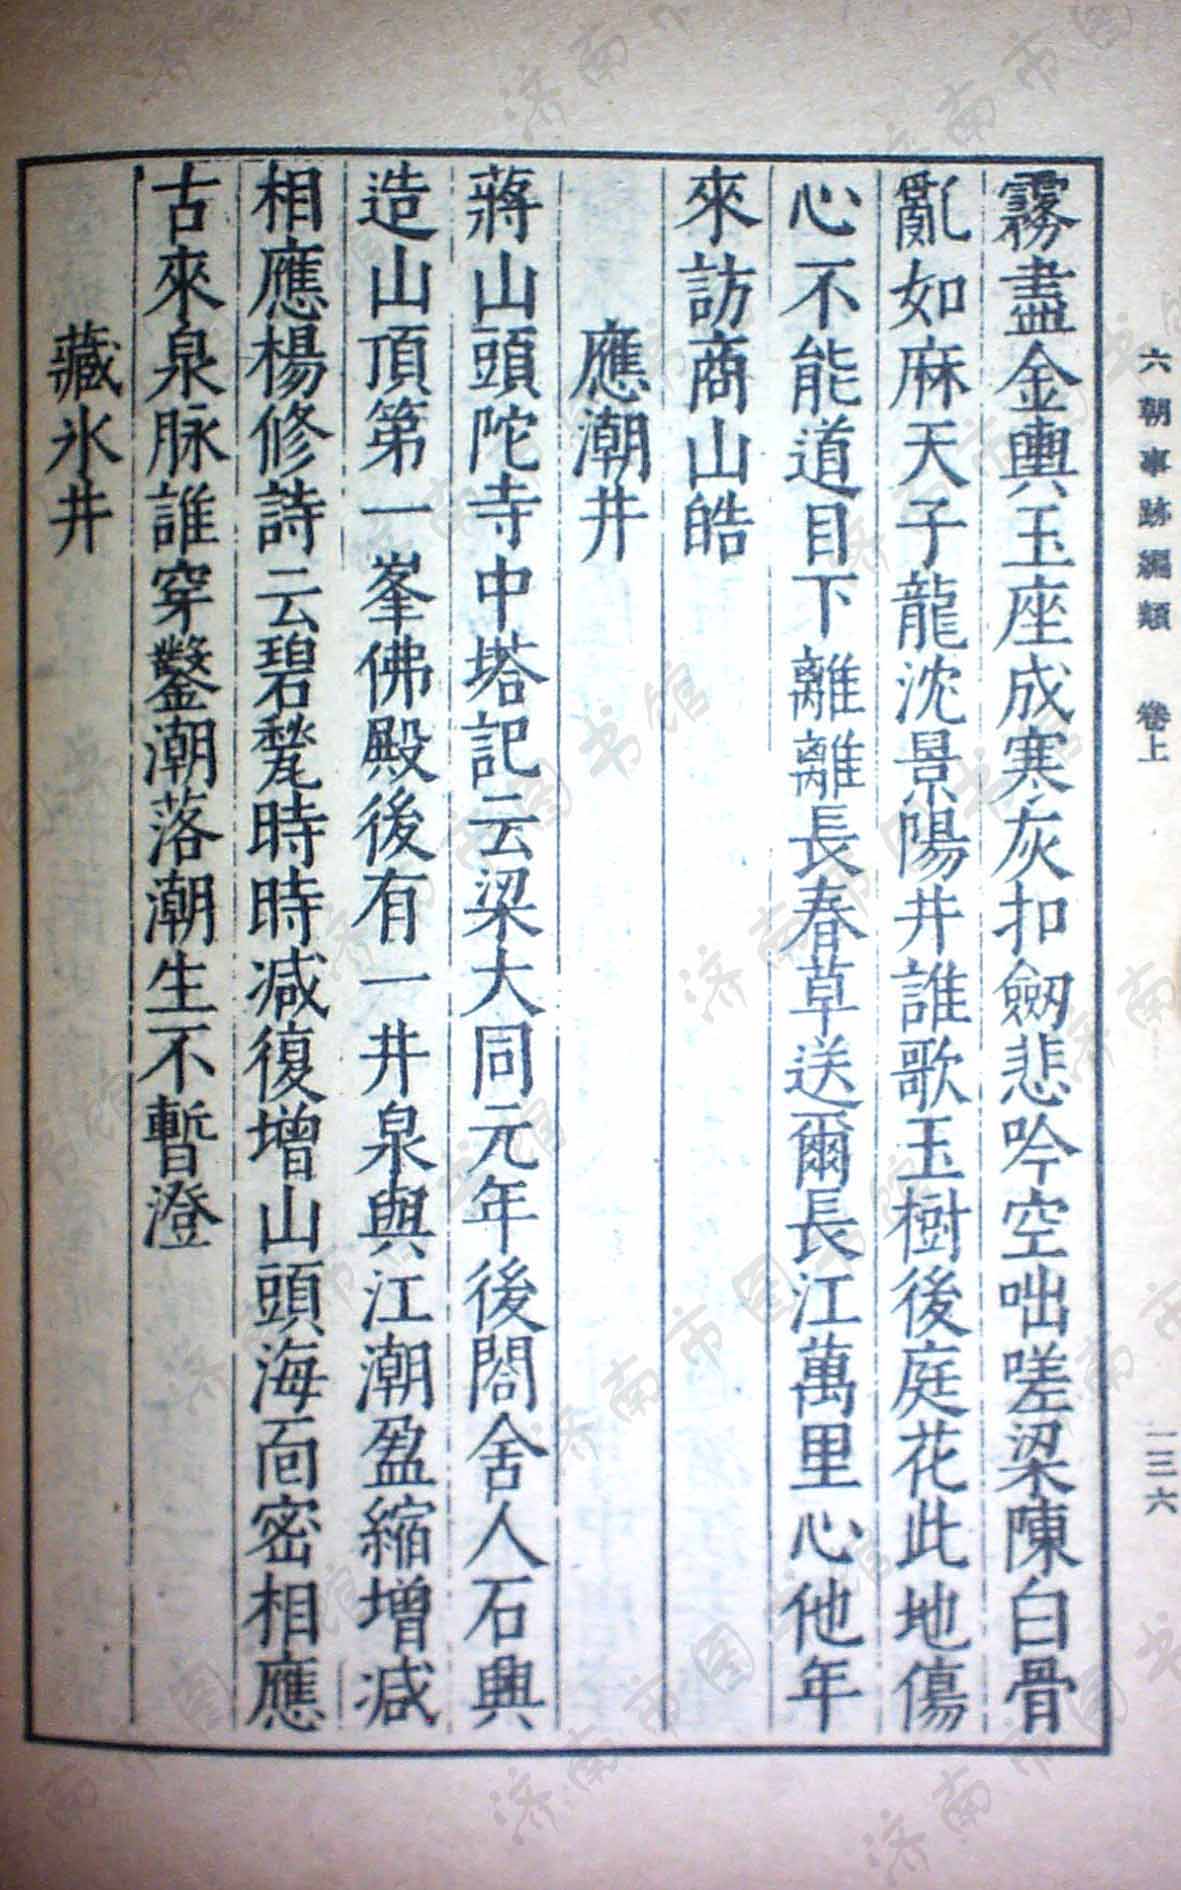 六朝事跡編類 卷上
一三六
霧盡金輿玉座成寒灰扣劒悲吟空咄嗟梁陳白骨
亂如麻天子龍沈景陽井誰歌玉樹後庭花此地傷
心不能道目下離離長春草送爾長江萬里心他年
來訪商山皓
應潮井
蔣山頭陀寺中塔記云梁大同元年後閤舍人石興
造山頂第一峯佛殿後有一井泉與江潮盈縮增减
相應楊修詩云碧甃時時减復增山頭海面密相應
古來泉脉誰穿鑿潮落潮生不暫澄
藏氷井
济南市图书馆